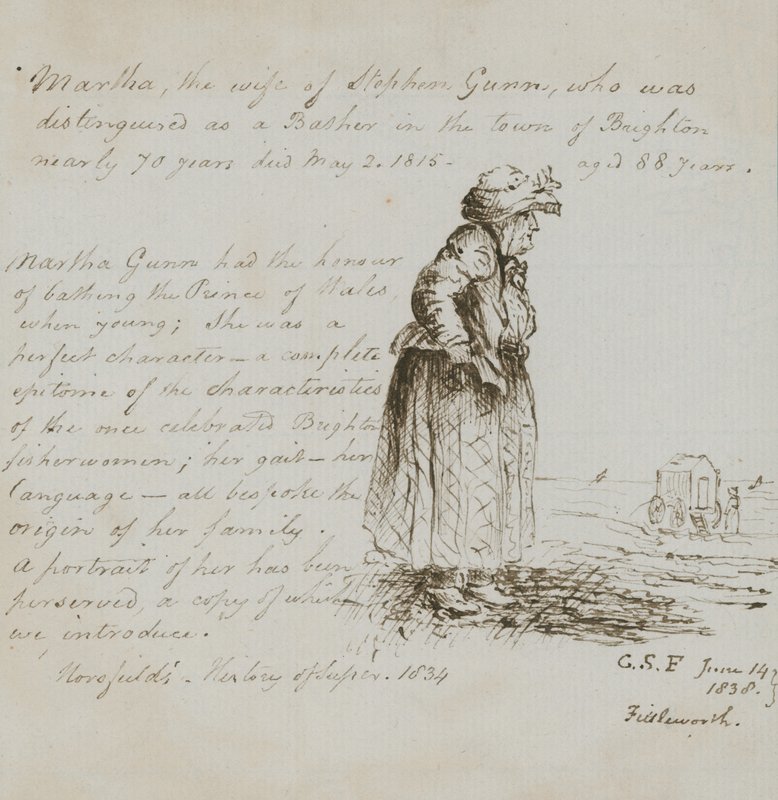 Martha, the wife of Stephen Gunn, who was
distinguered as a Bather in the town of Brighton
nearly 70 years died May 2. 1815 - aged 88 years.
Martha Gunn had the honour
of bathing the Prince of Wales,
when young; She was a
perfect character - a complete
epitome of the characteristics
of the once celebrated Brighton
fisherwomen; her gait - her
language - all bespoke the
origin of her family.
A portrait of her has been
perserved, a copy of which
we introduce.
Horsfield's - History of Sussex. 1834
G.S.F June 14
1838.
Fittleworth.